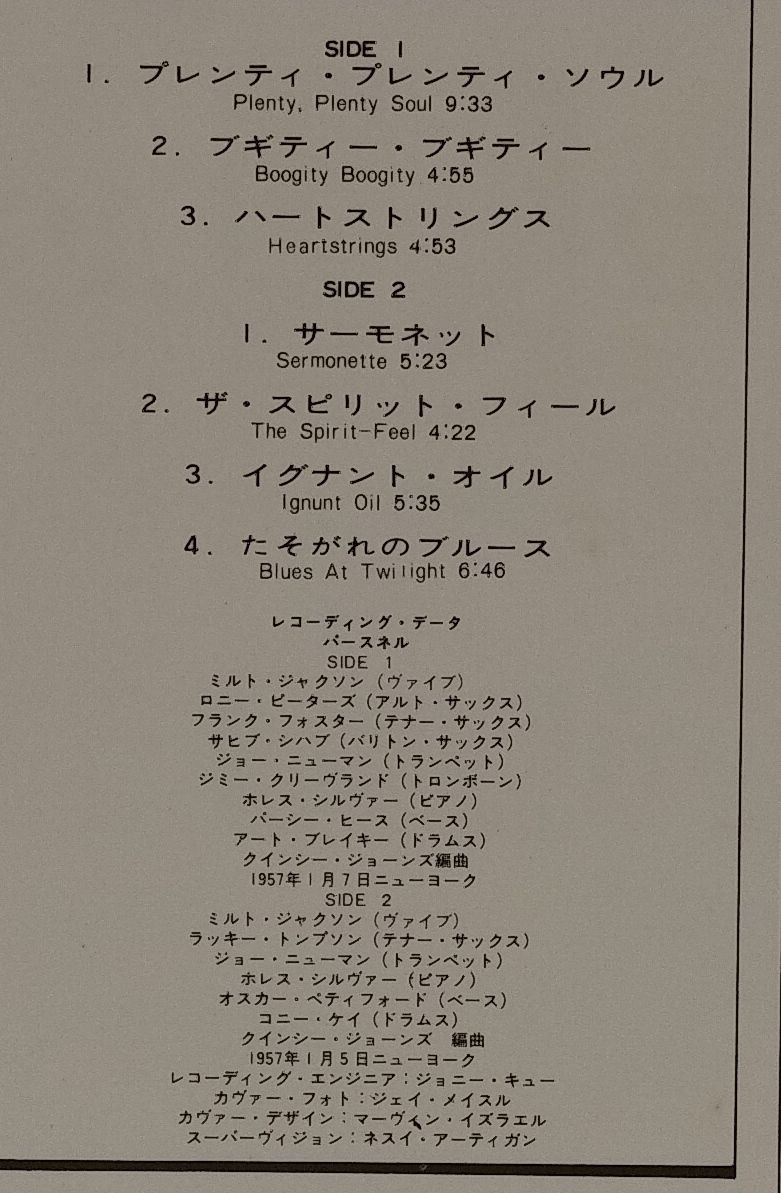 SIDE 1
1. プレンティ・プレンティ・ソウル
Plenty, Plenty Soul 9:33
2. ブギティー・ブギティー
Boogity Boogity 4:55
3. ハートストリングス
Heartstrings 4:53
SIDE 2
1. サーモネット
Sermonette 5:23
2. ザ・スピリット・フィール
The Spirit-Feel 4:22
3. イグナント・オイル
Ignunt Oil 5:35
4. たそがれのブルース
Blues At Twilight 6:46
レコーディング・データ
パースネル
SIDE 1
ミルト・ジャクソン(ヴァイブ)
ロニー・ピーターズ(アルト・サックス)
フランク・フォスター(テナー・サックス)
サヒブ・シハブ(バリトン・サックス)
ジョー・ニューマン(トランペット)
ジミー・クリーヴランド(トロンボーン)
ホレス・シルヴァー(ピアノ)
パーシー・ヒース(ベース)
アート・ブレイキー(ドラムス)
クインシー・ジョーンズ編曲
1957年1月7日ニューヨーク
SIDE 2
ミルト・ジャクソン(ヴァイブ)
ラッキー・トンプソン(テナー・サックス)
ジョー・ニューマン(トランペット)
ホレス・シルヴァー(ピアノ)
オスカー・ペティフォード(ベース)
コニー・ケイ(ドラムス)
クインシー・ジョーンズ 編曲
1957年1月5日ニューヨーク
レコーディング・エンジニア:ジョニー・キュー
カヴァー・フォト:ジェイ・メイスル
カヴァー・デザイン:マーヴィン・イズラエル
スーパーヴィジョン:ネスイ・アーティガン